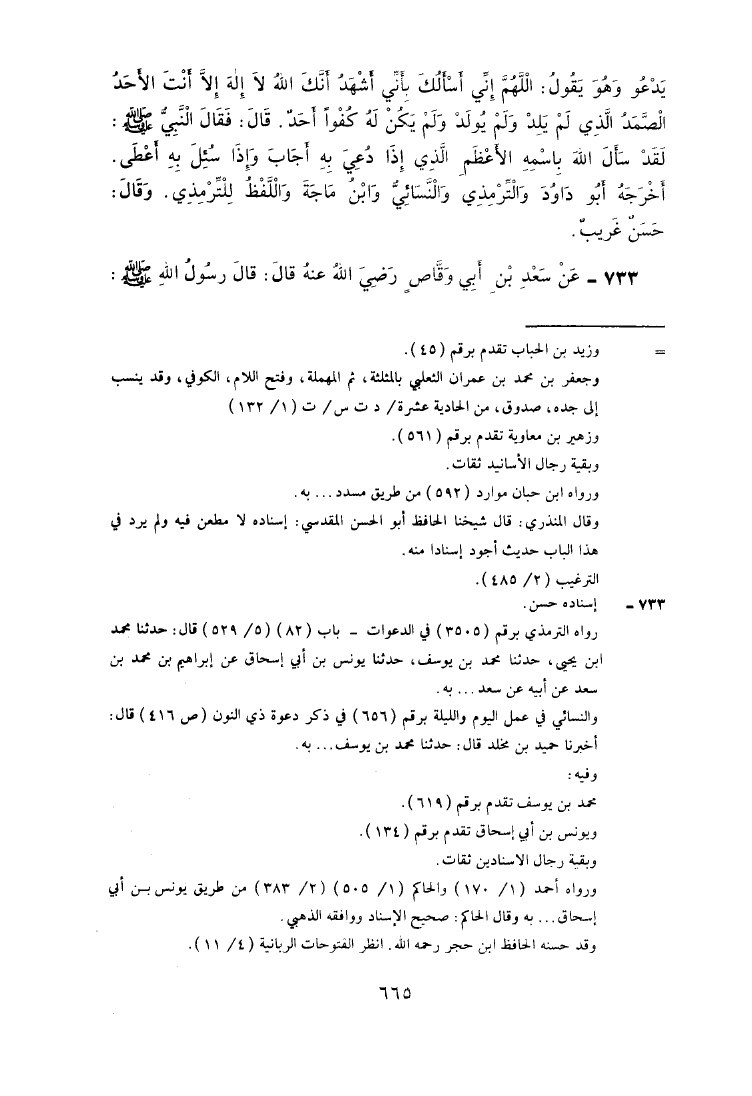 يَدْعُو وَهُوَ يَقُولُ: اللَّهُمَّ إِنِّي أَسْأَلُكَ بِأَنِّي أَشْهَدُ أَنَّكَ اللهُ لاَ إِلهَ إِلاَّ أَنْتَ الأَحَدُ
الْصَّمَدُ الَّذِي لَمْ يَلِدْ وَلَمْ يُولَدْ وَلَمْ يَكُنْ لَهُ كُفْواً أَحَدٌ. قَالَ: فَقَالَ النَّبِيُّ ﷺ:
لَقَدْ سَأَلَ اللهَ بِاسْمِهِ الأَعْظَمِ الَّذِي إِذَا دُعِيَ بِهِ أَجَابَ وَإِذَا سُئِلَ بِهِ أَعْطَى.
أَخْرَجَهُ أَبُو دَاوُدَ وَالتِّرْمِذِي وَالْنَّسَائِيُّ وَابْنُ مَاجَةَ وَاللَّفْظُ لِلْتِّرْمِذِي. وَقَالَ:
حَسَنٌ غَرِيبٌ.
٧٣٣ - عَنْ سَعْدِ بْنِ أَبِي وَقَّاصٍ رَضِيَ اللهُ عنهُ قالَ: قالَ رسُولُ اللهِ ﷺ:
= وزيد بن الحباب تقدم برقم (٤٥).
وجعفر بن محمد بن عمران الثعلبي بالمثلثة، ثم المهملة، وفتح اللام، الكوفي، وقد ينسب
إلى جده، صدوق، من الحادية عشرة/ د ت س/ ت (١/ ١٣٢)
وزهير بن معاوية تقدم برقم (٥٦١).
وبقية رجال الأسانيد ثقات.
ورواه ابن حبان موارد (٥٩٢) من طريق مسدد... به.
وقال المنذري: قال شيخنا الحافظ أبو الحسن المقدسي: إسناده لا مطعن فيه ولم يرد في
هذا الباب حديث أجود إسنادا منه.
الترغيب (٢/ ٤٨٥).
٧٣٣ - إسناده حسن.
رواه الترمذي برقم (٣٥٠٥) في الدعوات - باب (٨٢) (٥/ ٥٢٩) قال: حدثنا محمد
ابن يحيى، حدثنا محمد بن يوسف، حدثنا يونس بن أبي إسحاق عن إبراهيم بن محمد بن
سعد عن أبيه عن سعد... به.
والنسائي في عمل اليوم والليلة برقم (٦٥٦) في ذكر دعوة ذي النون (ص ٤١٦) قال:
أخبرنا حميد بن مخلد قال: حدثنا محمد بن يوسف... به.
وفيه:
محمد بن يوسف تقدم برقم (٦١٩).
ويونس بن أبي إسحاق تقدم برقم (١٣٤).
وبقية رجال الاسنادين ثقات.
ورواه أحمد (١/ ١٧٠) والحاكم (١/ ٥٠٥) (٢/ ٣٨٣) من طريق يونس بن أبي
إسحاق... به وقال الحاكم: صحيح الإسناد ووافقه الذهبي.
وقد حسنه الحافظ ابن حجر رحمه الله. انظر الفتوحات الربانية (٤/ ١١).
٦٦٥